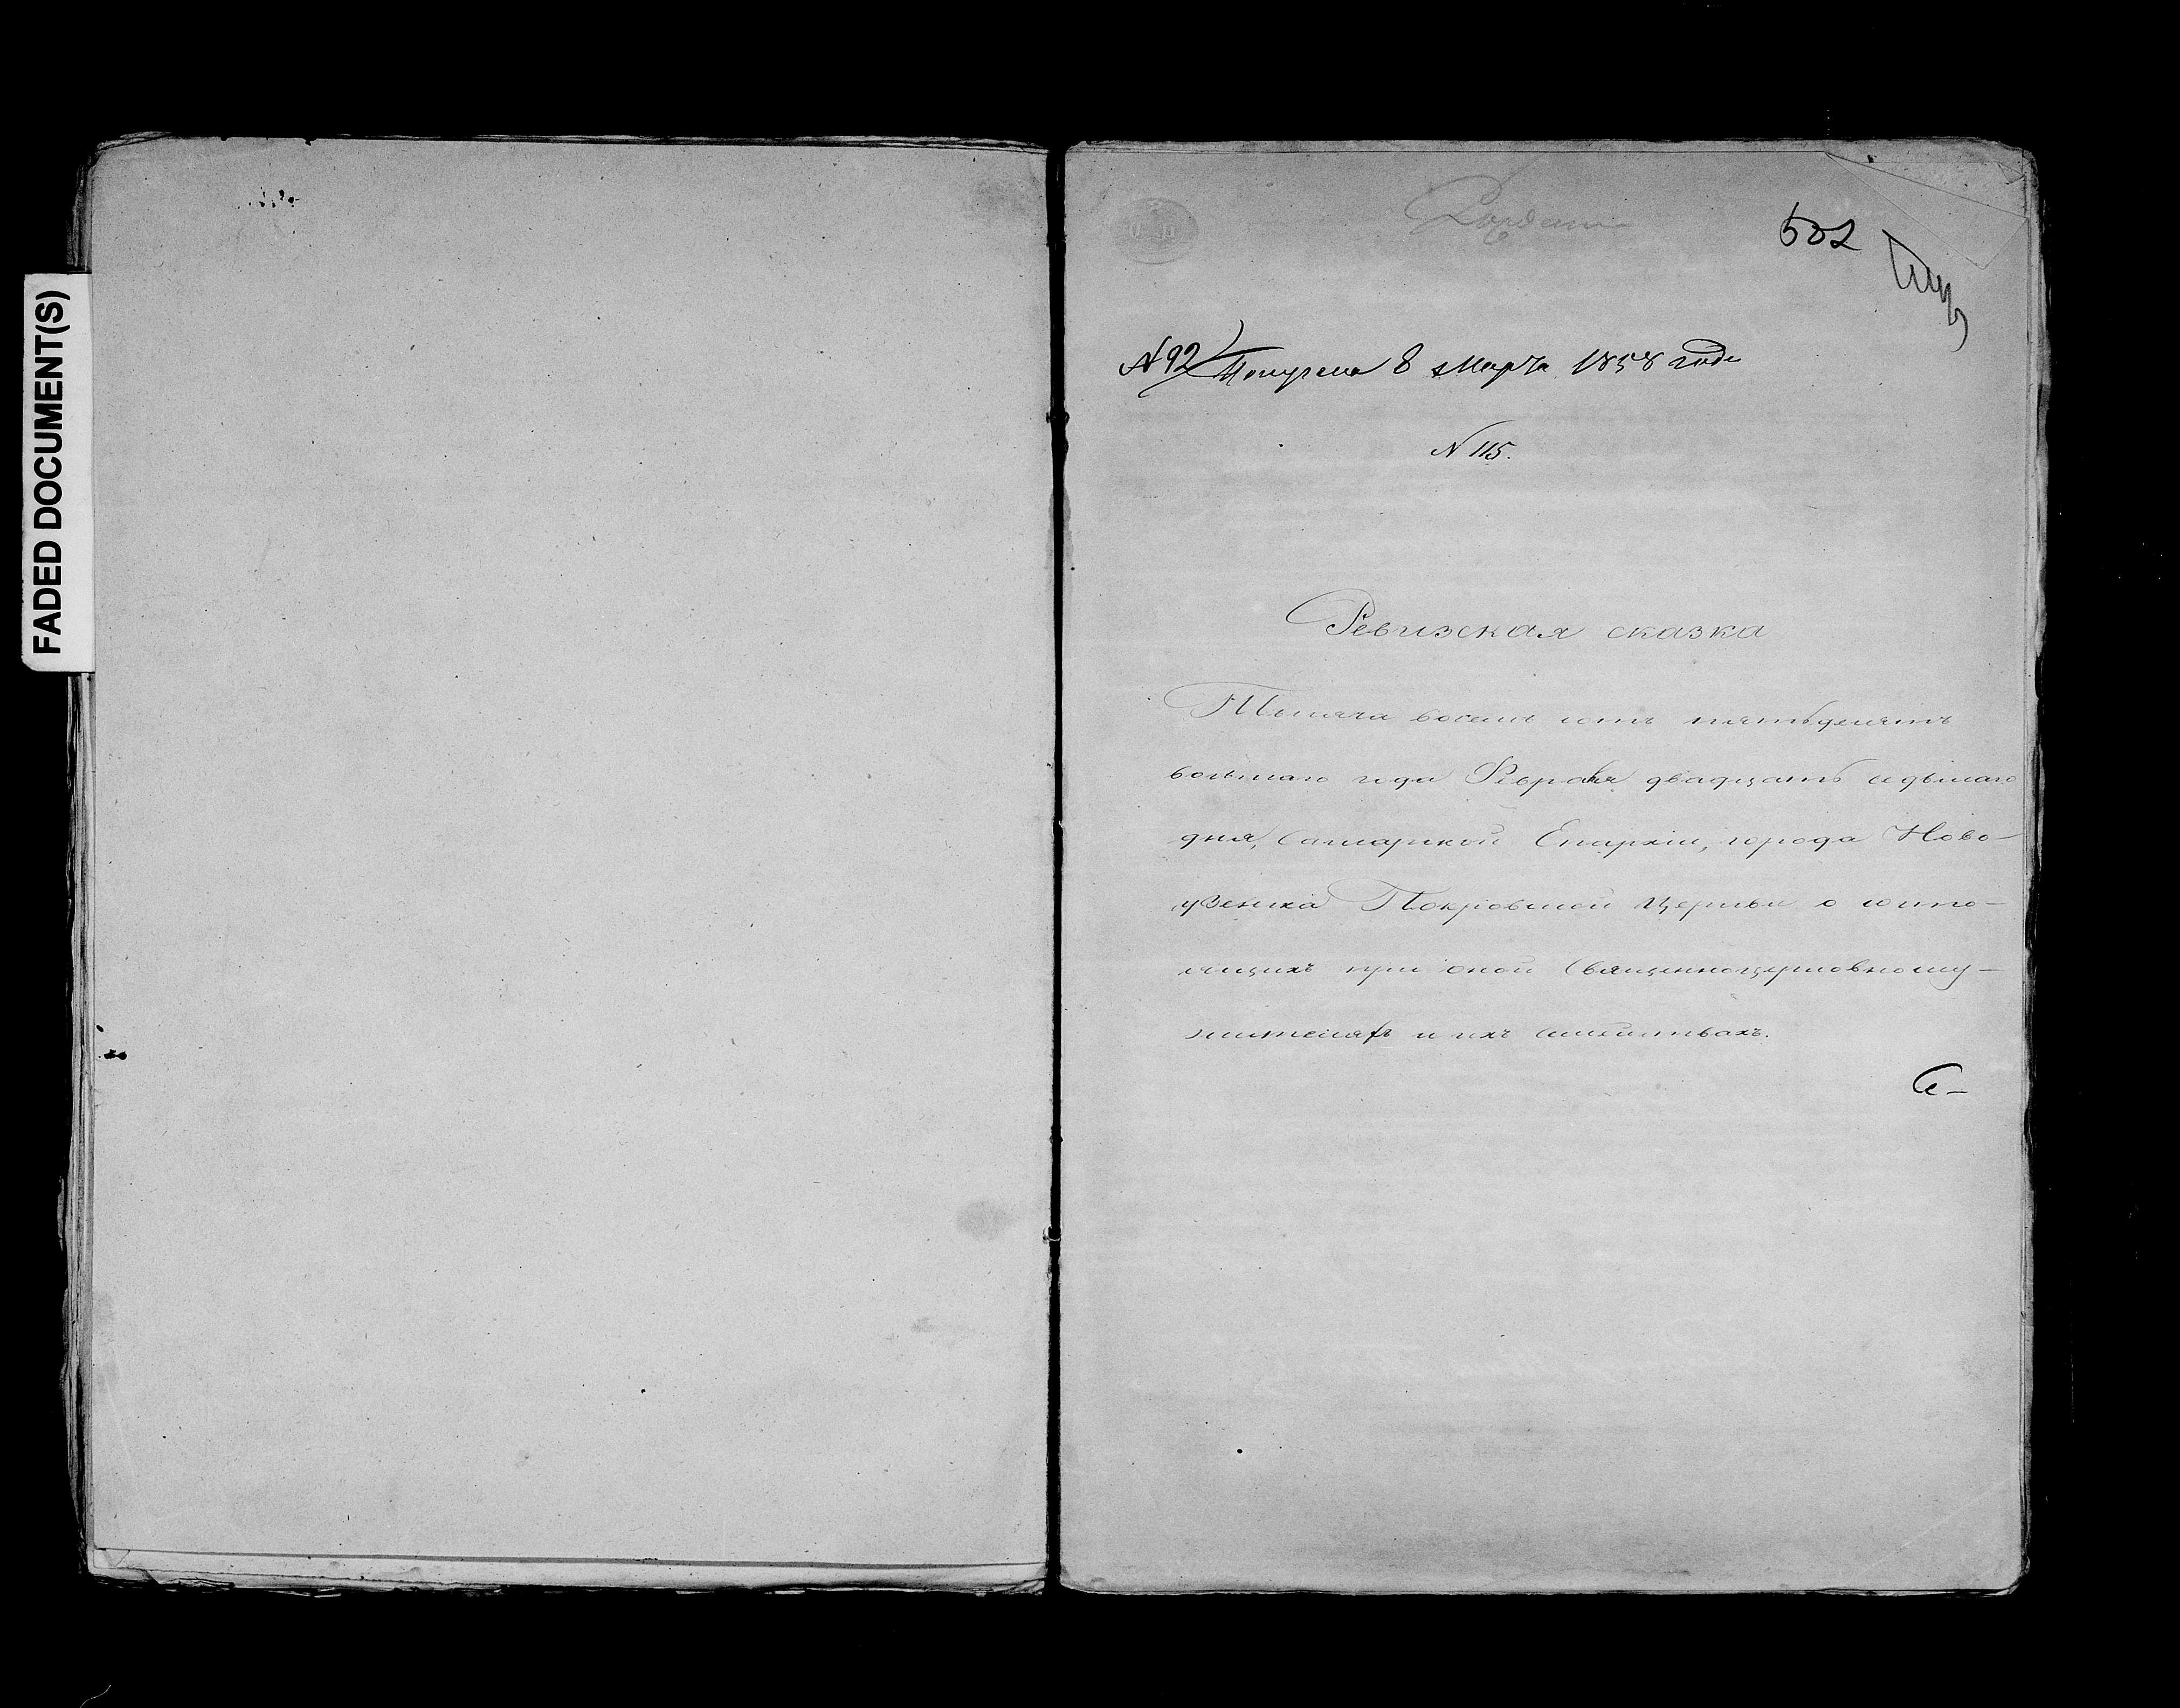 FADED DOCUMENT(S)
502
N 92 Получена 8 Марта 1858 года
N 115.
Ревизская сказка
Тысяча восемь сотъ пятьдесятъ
восьмаго года Февраля двадцать седьмаго
дня, Самарской Епархіи, города Ново-
узенска Покровской Церкви о состо-
ящихъ при оной Священноцерковнослу-
жителяхъ и ихъ семействахъ.